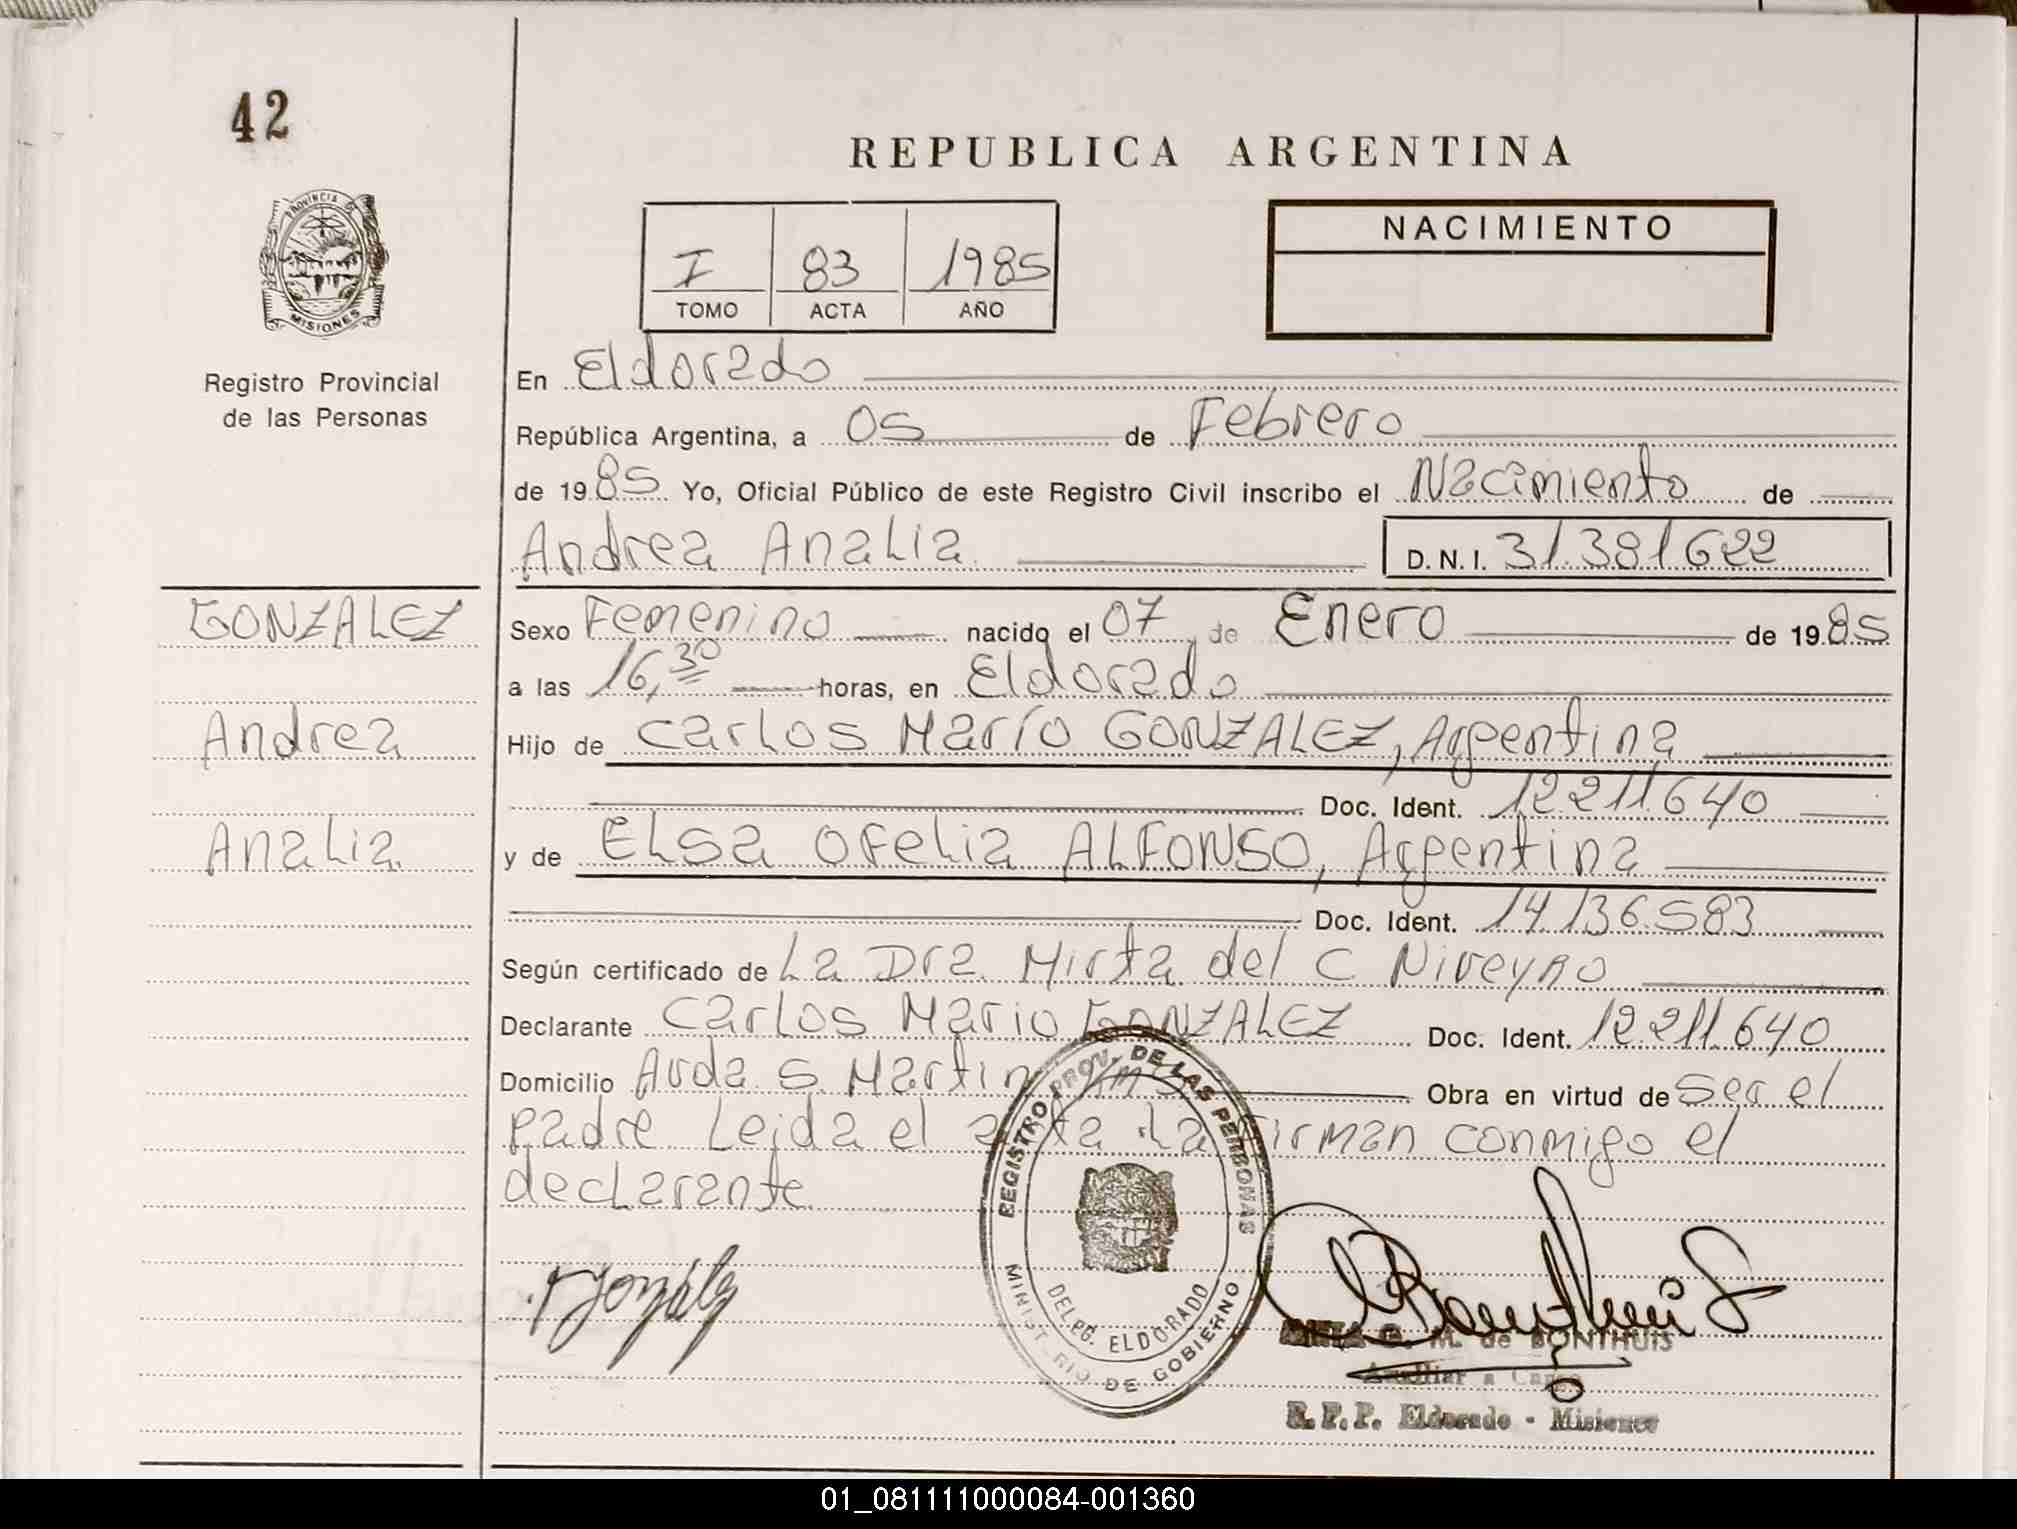 42
REPUBLICA ARGENTINA
PROVINCIA DE
MISIONES
Registro Provincial
de las Personas
I 83 1985
TOMO ACTA AÑO
NACIMIENTO
En Eldorado
República Argentina, a 05 de Febrero
de 1985 Yo, Oficial Público de este Registro Civil inscribo el Nacimiento de
Andrea Analia D.N.I. 31.381622
GONZALEZ
Andrea
Analia
Sexo Femenino nacido el 07 de Enero de 1985
a las 16,30 horas, en Eldorado
Hijo de Carlos Mario GONZALEZ, Argentina
Doc. Ident. 12.211.640
y de Elsa Ofelia ALFONSO, Argentina
Doc. Ident. 14.136.583
Según certificado de La Dra Mirta del C Nireyro
Declarante Carlos Mario GONZALEZ Doc. Ident. 12.211.640
Domicilio Avda S. Martin Obra en virtud de ser el
padre Leida el acta La Firman conmigo el
declarante
REGISTRO PROV. DE LAS PERSONAS
DELEG. ELDORADO
MINISTERIO DE GOBIERNO
M. de BONTHUIS
Auxiliar a Cargo
R.P.P. Eldorado - Misiones
01_081111000084-001360